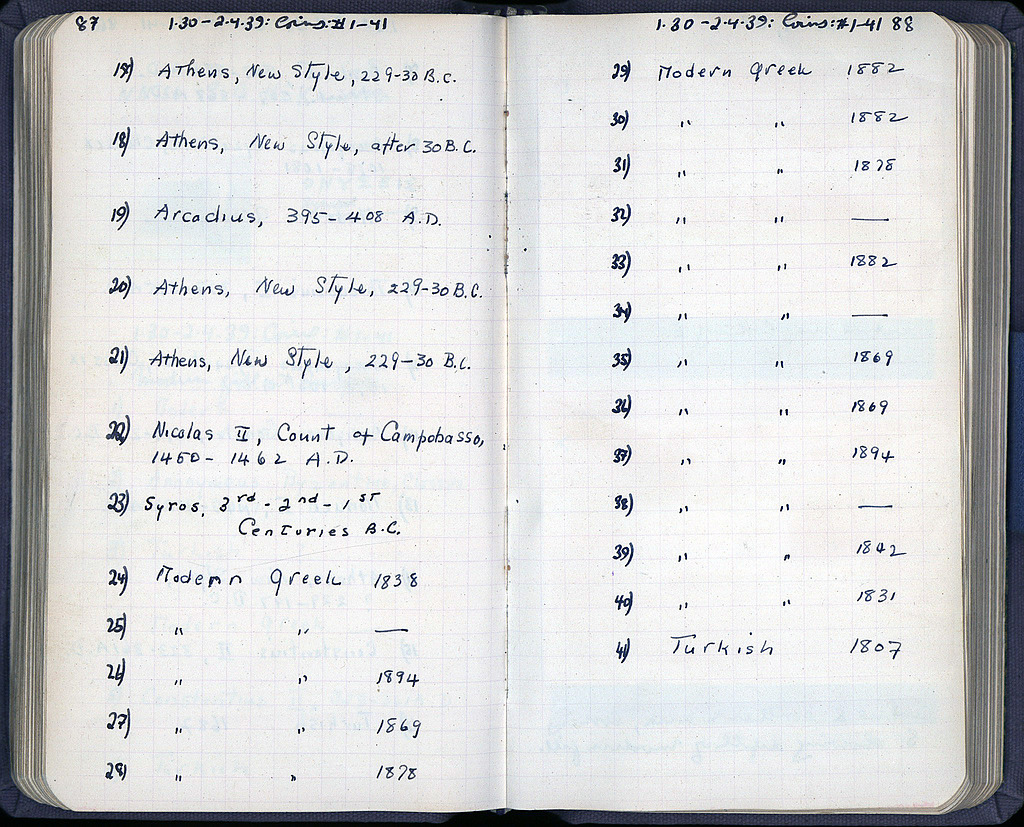 87 1.30-2.4.39: Coins: #1-41
Athens, New Style, 229-30 B.C.
18) Athens, New Style, after 30 B.C.
19) Arcadius, 395-408 A.D.
20) Athens, New Style, 229-30 B.C.
21) Athens, New Style, 229-30 B.C.
22) Nicolas II, Count of Campobasso,
1450-1462 A.D.
23) Syros, 3rd-2nd-1st
Centuries B.C.
24) Modern Greek 1838
25) " " —
26) " " 1894
27) " " 1869
28) " " 1878
1.30-2.4.39: Coins: #1-41 88
29) Modern Greek 1882
30) " " 1882
31) " " 1878
32) " " —
33) " " 1882
34) " " —
35) " " 1869
36) " " 1869
37) " " 1894
38) " " —
39) " " 1842
40) " " 1831
41) Turkish 1807